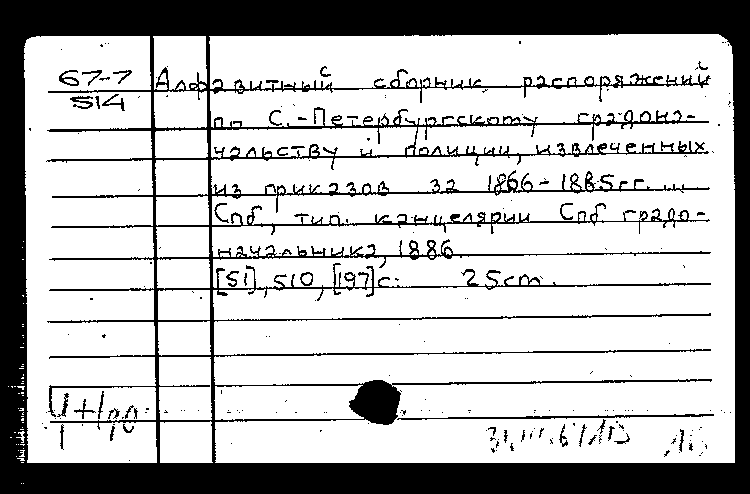 67-7
514
Алфавитный сборник распоряжений
по С.-Петербургскому градона-
чальству и полиции, извлеченных
из приказов за 1866-1885гг. ...
Спб., тип. канцелярии Спб. градо-
начальника, 1886.
[51], 510, [197]с. 25cm.